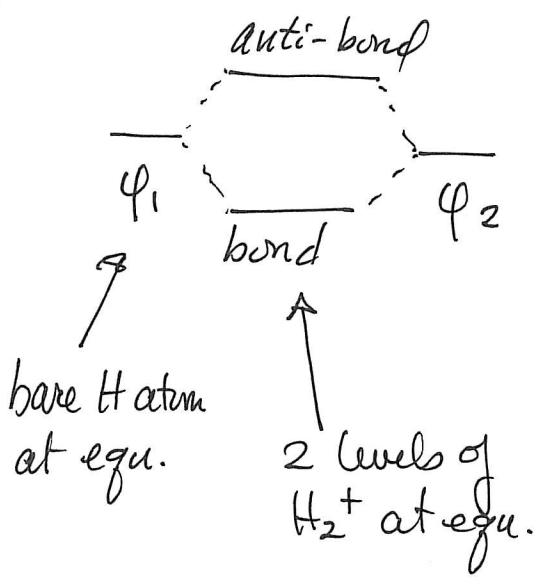 anti-bond
φ₁
φ₂
bond
bare H atom
at equ.
2 levels of
H₂⁺ at equ.